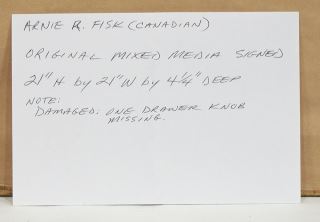 ARNIE R. FISK (CANADIAN)
ORIGINAL MIXED MEDIA SIGNED
21" H by 21" W by 4 1/4" DEEP
NOTE:
DAMAGED: ONE DRAWER KNOB
MISSING.